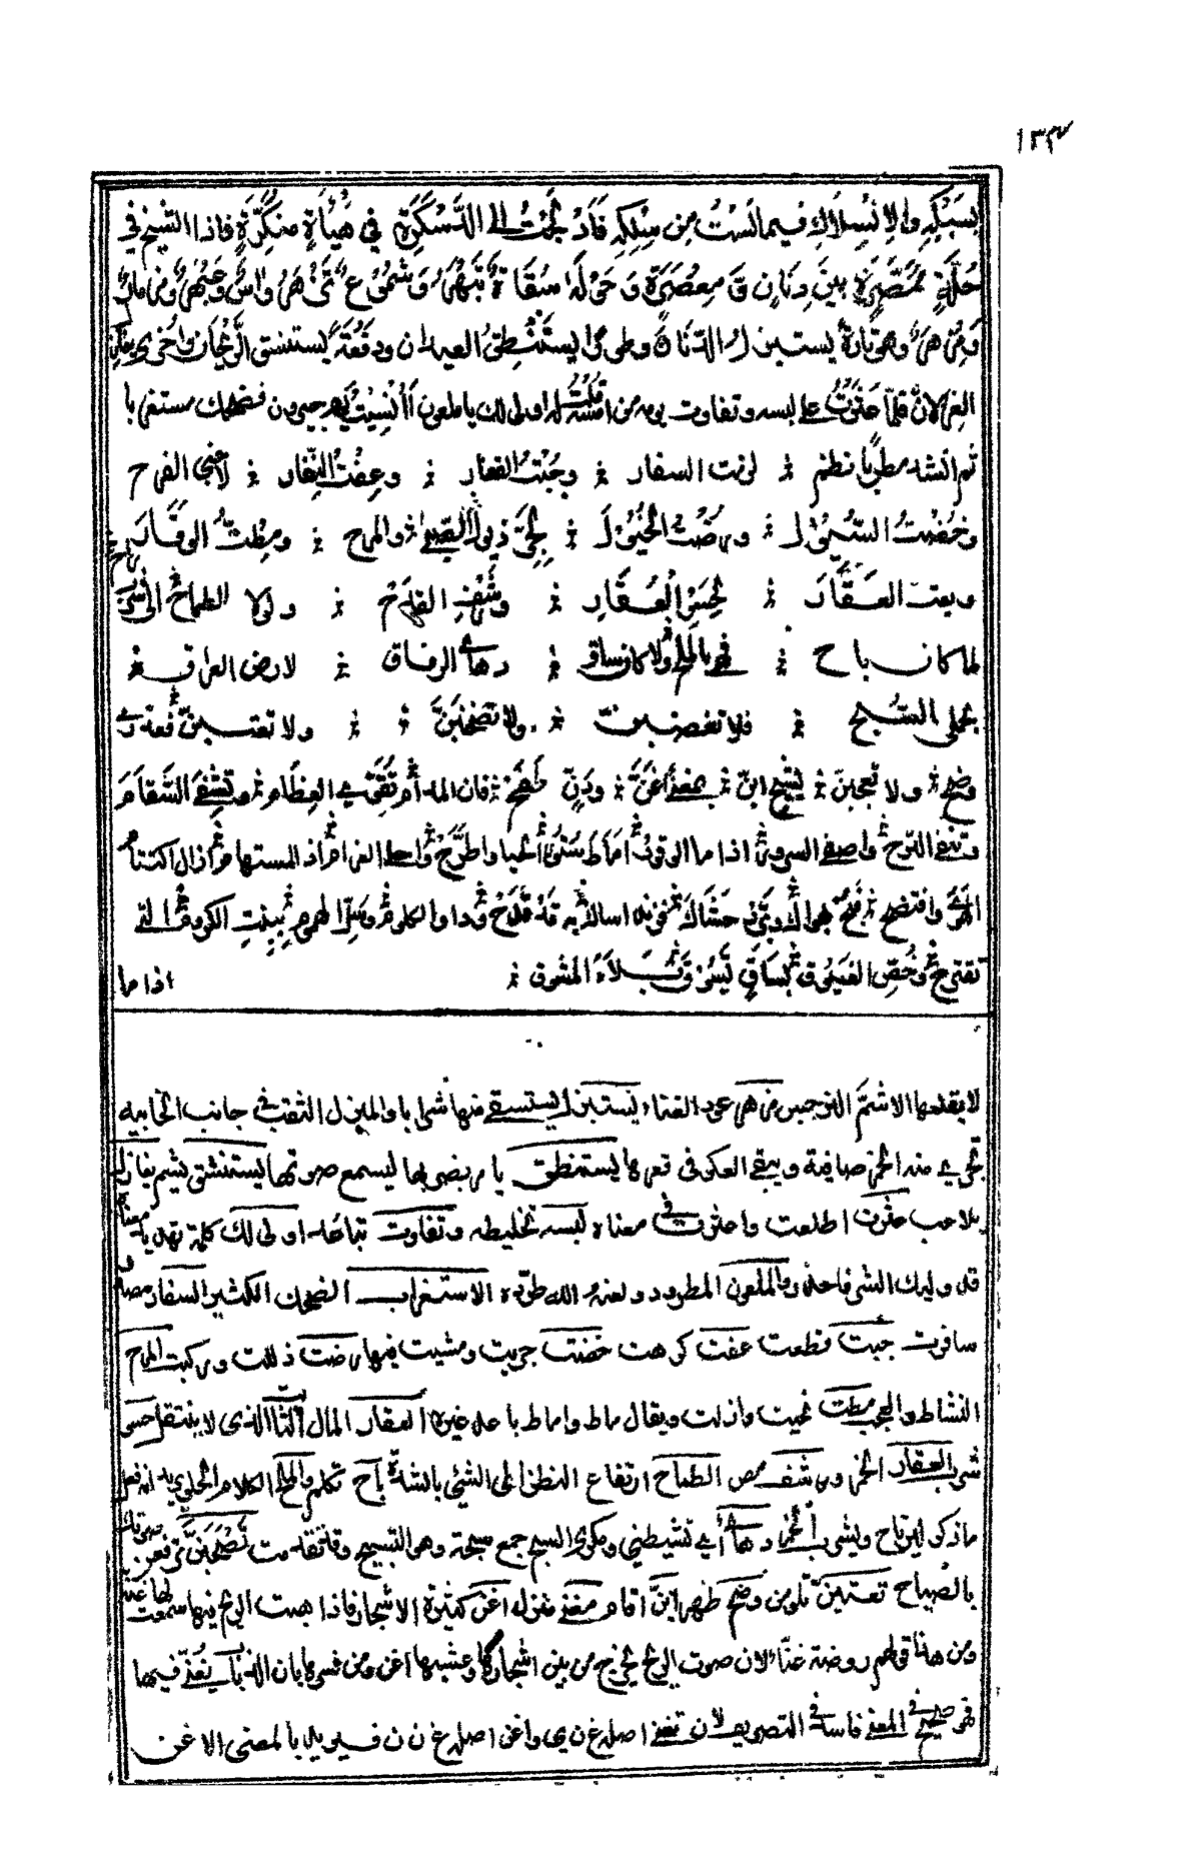 ١٣٤
بسبكه والانسلاك فيما لست من سلكه فادلجت الى الدسكرة في هيأة منكرة فاذا الشيخ في
حلة ممصرة بين دنان ومعصرة وحوله سقاة تبهر وشموع تزهر واس وعبهر ومزمار
ومزهر وهو تارة يستبزل الدنان وطورا يستنطق العيدان ودفعة يستنشق الريحان واخرى يغازل
الغزلان فلما عثرت على لبسه وتفاوت يومه من امسه قلت له اولى لك يا ملعون أأنسيت يوم جيرون فضحك مستغربا
ثم انشد مطربا نظم لزمت السفار وجبت القفار وعفت النفار لاجني الفرح
وخضت السيول ورضت الخيول لجر ذيول الصبى والمرح ومطت الوقار
وبعت العقار لحسو العقار ورشف القدح ولولا الطماح الى شرب راح
لما كان باح فمي بالملح ولا كان ساق دهائي الرفاق لارض العراق
بحملي السبح فلا تغضبن ولا تصخبن ولا تعتبن فعذري
وضح ولا تعجبن لشيخ ابن بمغنى اغن ودن طفح فان المدام تقوي العظام وتشفي السقام
وتنفي الترح واصفى السرور اذا ما الوقور اماط ستور الحيا واطرح واحلى الغرام اذا المستهام ازال اكتتام
الهوى وافتضح فبح بهواك وبرد حشاك فزند اساك به قد قدح وداو الكلوم وسل الهموم ببنت الكروم التي
تقترح وخص الغبوق بساق يسوق بلاء المشوق
اذا ما
لا يقلعها الا شم النرجس مزهر عود الغناء يستبزل يستسقي منها شرابا والمبزل الثقب في جانب الخابيه
تجري منه الخمر صافية ويبقى العكر في قعرها يستنطق يامر بضربها ليسمع صوتها يستنشق يشم يغازل
يلاعب عثرت اطلعت واعثرت في معناه لبسه تخليطه وتفاوت تباعد اولى لك كلمة تهديد معناه
قد وليك الشر فاحذر والملعون المطرود ولعنه الله طرده الاستغراب الضحك الكثير السفار مصدر
سافرت جبت قطعت عفت كرهت خضت جريت ومشيت فيها رضت ذللت وركبت المرح
النشاط والعجب مطت نحيت وازلت ويقال ماط واماط باعد غيره العقار المال الثابت الذي لا ينتقل حسى
شرب العقار الخمر ورشف مص الطماح ارتفاع النظر الى الشئ بالشدة باح تكلم والملح الكلام الحلو
ماذكر ليرتاح ويشرب الخمر دهائي السبح جمع سبحة وهو التسبيح وقد تقدمت تصخبن ترفعن صوتك
بالصياح تعتبن تلومن وضح ظهر ابن اقام مغنى منزل اغن كثيرة الاشجار فاذا هبت الريح فيها سمعت لها غنة
ومن هذا قولهم روضة غناء لان صوت الريح يخرج من بين اشجارها وعشبها اغن ومن فسره بان الذباب يغني فيها
فهو صحيح في المعنى فاسد في التصريف لان تغنى اصله غ ن ي واغن اصله غ ن ن فيريد بالمعنى الاغن